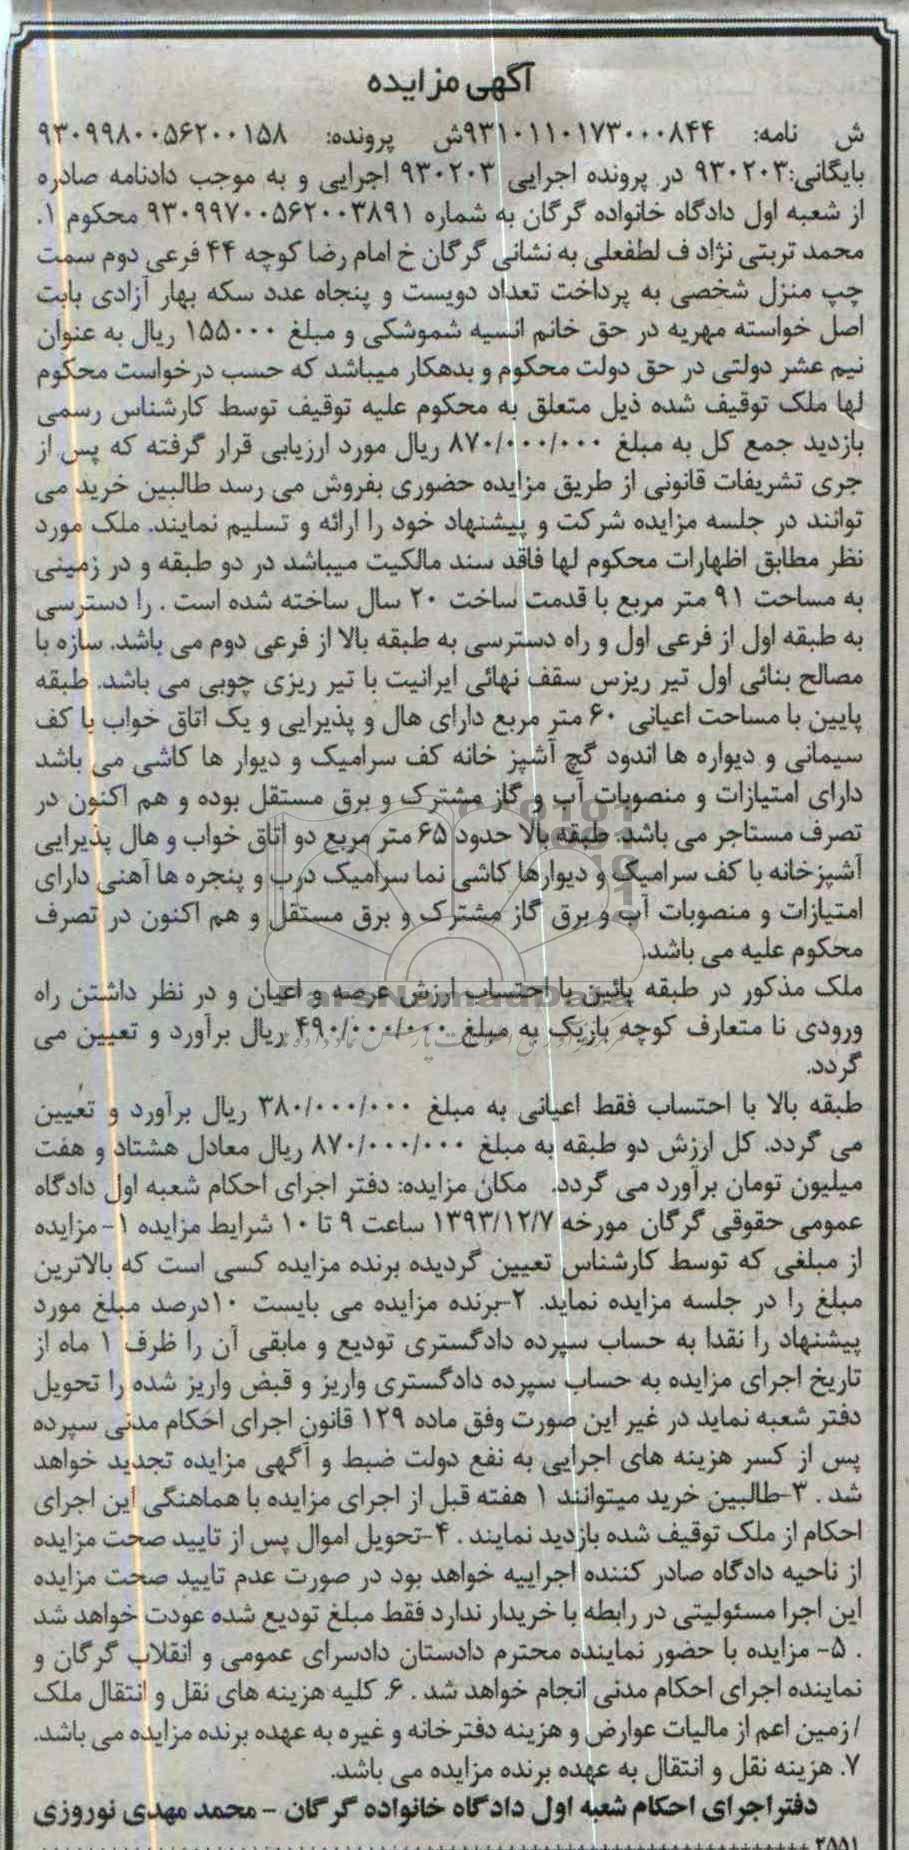 آگهی مزایده
ش نامه: ۹۳۱۰۱۱۰۱۷۳۰۰۰۸۴۴ش پرونده: ۹۳۰۹۹۸۰۰۵۶۲۰۰۱۵۸
بایگانی:۹۳۰۲۰۳ در پرونده اجرایی ۹۳۰۲۰۳ اجرایی و به موجب دادنامه صادره
از شعبه اول دادگاه خانواده گرگان به شماره ۹۳۰۹۹۷۰۰۵۶۲۰۰۳۸۹۱ محکوم ۱.
محمد تربتی نژاد ف لطفعلی به نشانی گرگان خ امام رضا کوچه ۴۴ فرعی دوم سمت
چپ منزل شخصی به پرداخت تعداد دویست و پنجاه عدد سکه بهار آزادی بابت
اصل خواسته مهریه در حق خانم انسیه شموشکی و مبلغ ۱۵۵۰۰۰ ریال به عنوان
نیم عشر دولتی در حق دولت محکوم و بدهکار میباشد که حسب درخواست محکوم
لها ملک توقیف شده ذیل متعلق به محکوم علیه توقیف توسط کارشناس رسمی
بازدید جمع کل به مبلغ ۸۷۰/۰۰۰/۰۰۰ ریال مورد ارزیابی قرار گرفته که پس از
جری تشریفات قانونی از طریق مزایده حضوری بفروش می رسد طالبین خرید می
توانند در جلسه مزایده شرکت و پیشنهاد خود را ارائه و تسلیم نمایند. ملک مورد
نظر مطابق اظهارات محکوم لها فاقد سند مالکیت میباشد در دو طبقه و در زمینی
به مساحت ۹۱ متر مربع با قدمت ساخت ۲۰ سال ساخته شده است . را دسترسی
به طبقه اول از فرعی اول و راه دسترسی به طبقه بالا از فرعی دوم می باشد. سازه با
مصالح بنائی اول تیر ریزس سقف نهائی ایرانیت با تیر ریزی چوبی می باشد. طبقه
پایین با مساحت اعیانی ۶۰ متر مربع دارای هال و پذیرایی و یک اتاق خواب با کف
سیمانی و دیواره ها اندود گچ آشپز خانه کف سرامیک و دیوار ها کاشی می باشد
دارای امتیازات و منصوبات آب و گاز مشترک و برق مستقل بوده و هم اکنون در
تصرف مستاجر می باشد. طبقه بالا حدود ۶۵ متر مربع دو اتاق خواب و هال پذیرایی
آشپزخانه با کف سرامیک و دیوارها کاشی نما سرامیک درب و پنجره ها آهنی دارای
امتیازات و منصوبات آب و برق گاز مشترک و برق مستقل و هم اکنون در تصرف
محکوم علیه می باشد.
ملک مذکور در طبقه پائین با احتساب ارزش عرصه و اعیان و در نظر داشتن راه
ورودی نا متعارف کوچه باریک به مبلغ ۴۹۰/۰۰۰/۰۰۰ ریال برآورد و تعیین می
گردد.
طبقه بالا با احتساب فقط اعیانی به مبلغ ۳۸۰/۰۰۰/۰۰۰ ریال برآورد و تعیین
می گردد. کل ارزش دو طبقه به مبلغ ۸۷۰/۰۰۰/۰۰۰ ریال معادل هشتاد و هفت
میلیون تومان برآورد می گردد. مکان مزایده: دفتر اجرای احکام شعبه اول دادگاه
عمومی حقوقی گرگان مورخه ۱۳۹۳/۱۲/۷ ساعت ۹ تا ۱۰ شرایط مزایده ۱- مزایده
از مبلغی که توسط کارشناس تعیین گردیده برنده مزایده کسی است که بالاترین
مبلغ را در جلسه مزایده نماید. ۲-برنده مزایده می بایست ۱۰درصد مبلغ مورد
پیشنهاد را نقدا به حساب سپرده دادگستری تودیع و مابقی آن را ظرف ۱ ماه از
تاریخ اجرای مزایده به حساب سپرده دادگستری واریز و قبض واریز شده را تحویل
دفتر شعبه نماید در غیر این صورت وفق ماده ۱۲۹ قانون اجرای احکام مدنی سپرده
پس از کسر هزینه های اجرایی به نفع دولت ضبط و آگهی مزایده تجدید خواهد
شد . ۳-طالبین خرید میتوانند ۱ هفته قبل از اجرای مزایده با هماهنگی این اجرای
احکام از ملک توقیف شده بازدید نمایند . ۴-تحویل اموال پس از تایید صحت مزایده
از ناحیه دادگاه صادر کننده اجراییه خواهد بود در صورت عدم تایید صحت مزایده
این اجرا مسئولیتی در رابطه با خریدار ندارد فقط مبلغ تودیع شده عودت خواهد شد
. ۵- مزایده با حضور نماینده محترم دادستان دادسرای عمومی و انقلاب گرگان و
نماینده اجرای احکام مدنی انجام خواهد شد . ۶. کلیه هزینه های نقل و انتقال ملک
/زمین اعم از مالیات عوارض و هزینه دفترخانه و غیره به عهده برنده مزایده می باشد.
۷. هزینه نقل و انتقال به عهده برنده مزایده می باشد.
دفتر اجرای احکام شعبه اول دادگاه خانواده گرگان - محمد مهدی نوروزی
۲۵۵۱
ParsNamadData